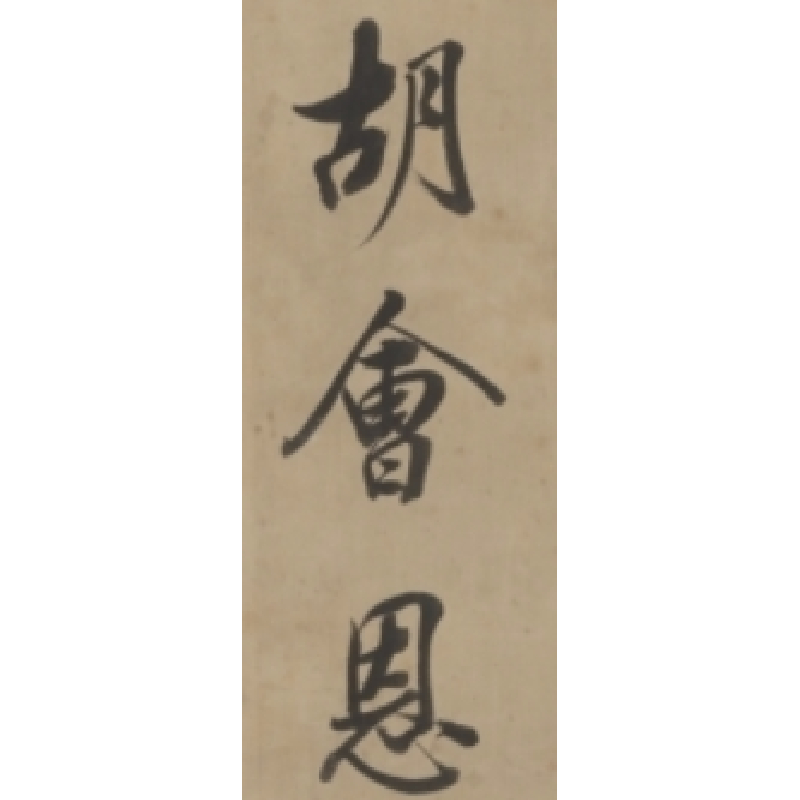 胡會恩